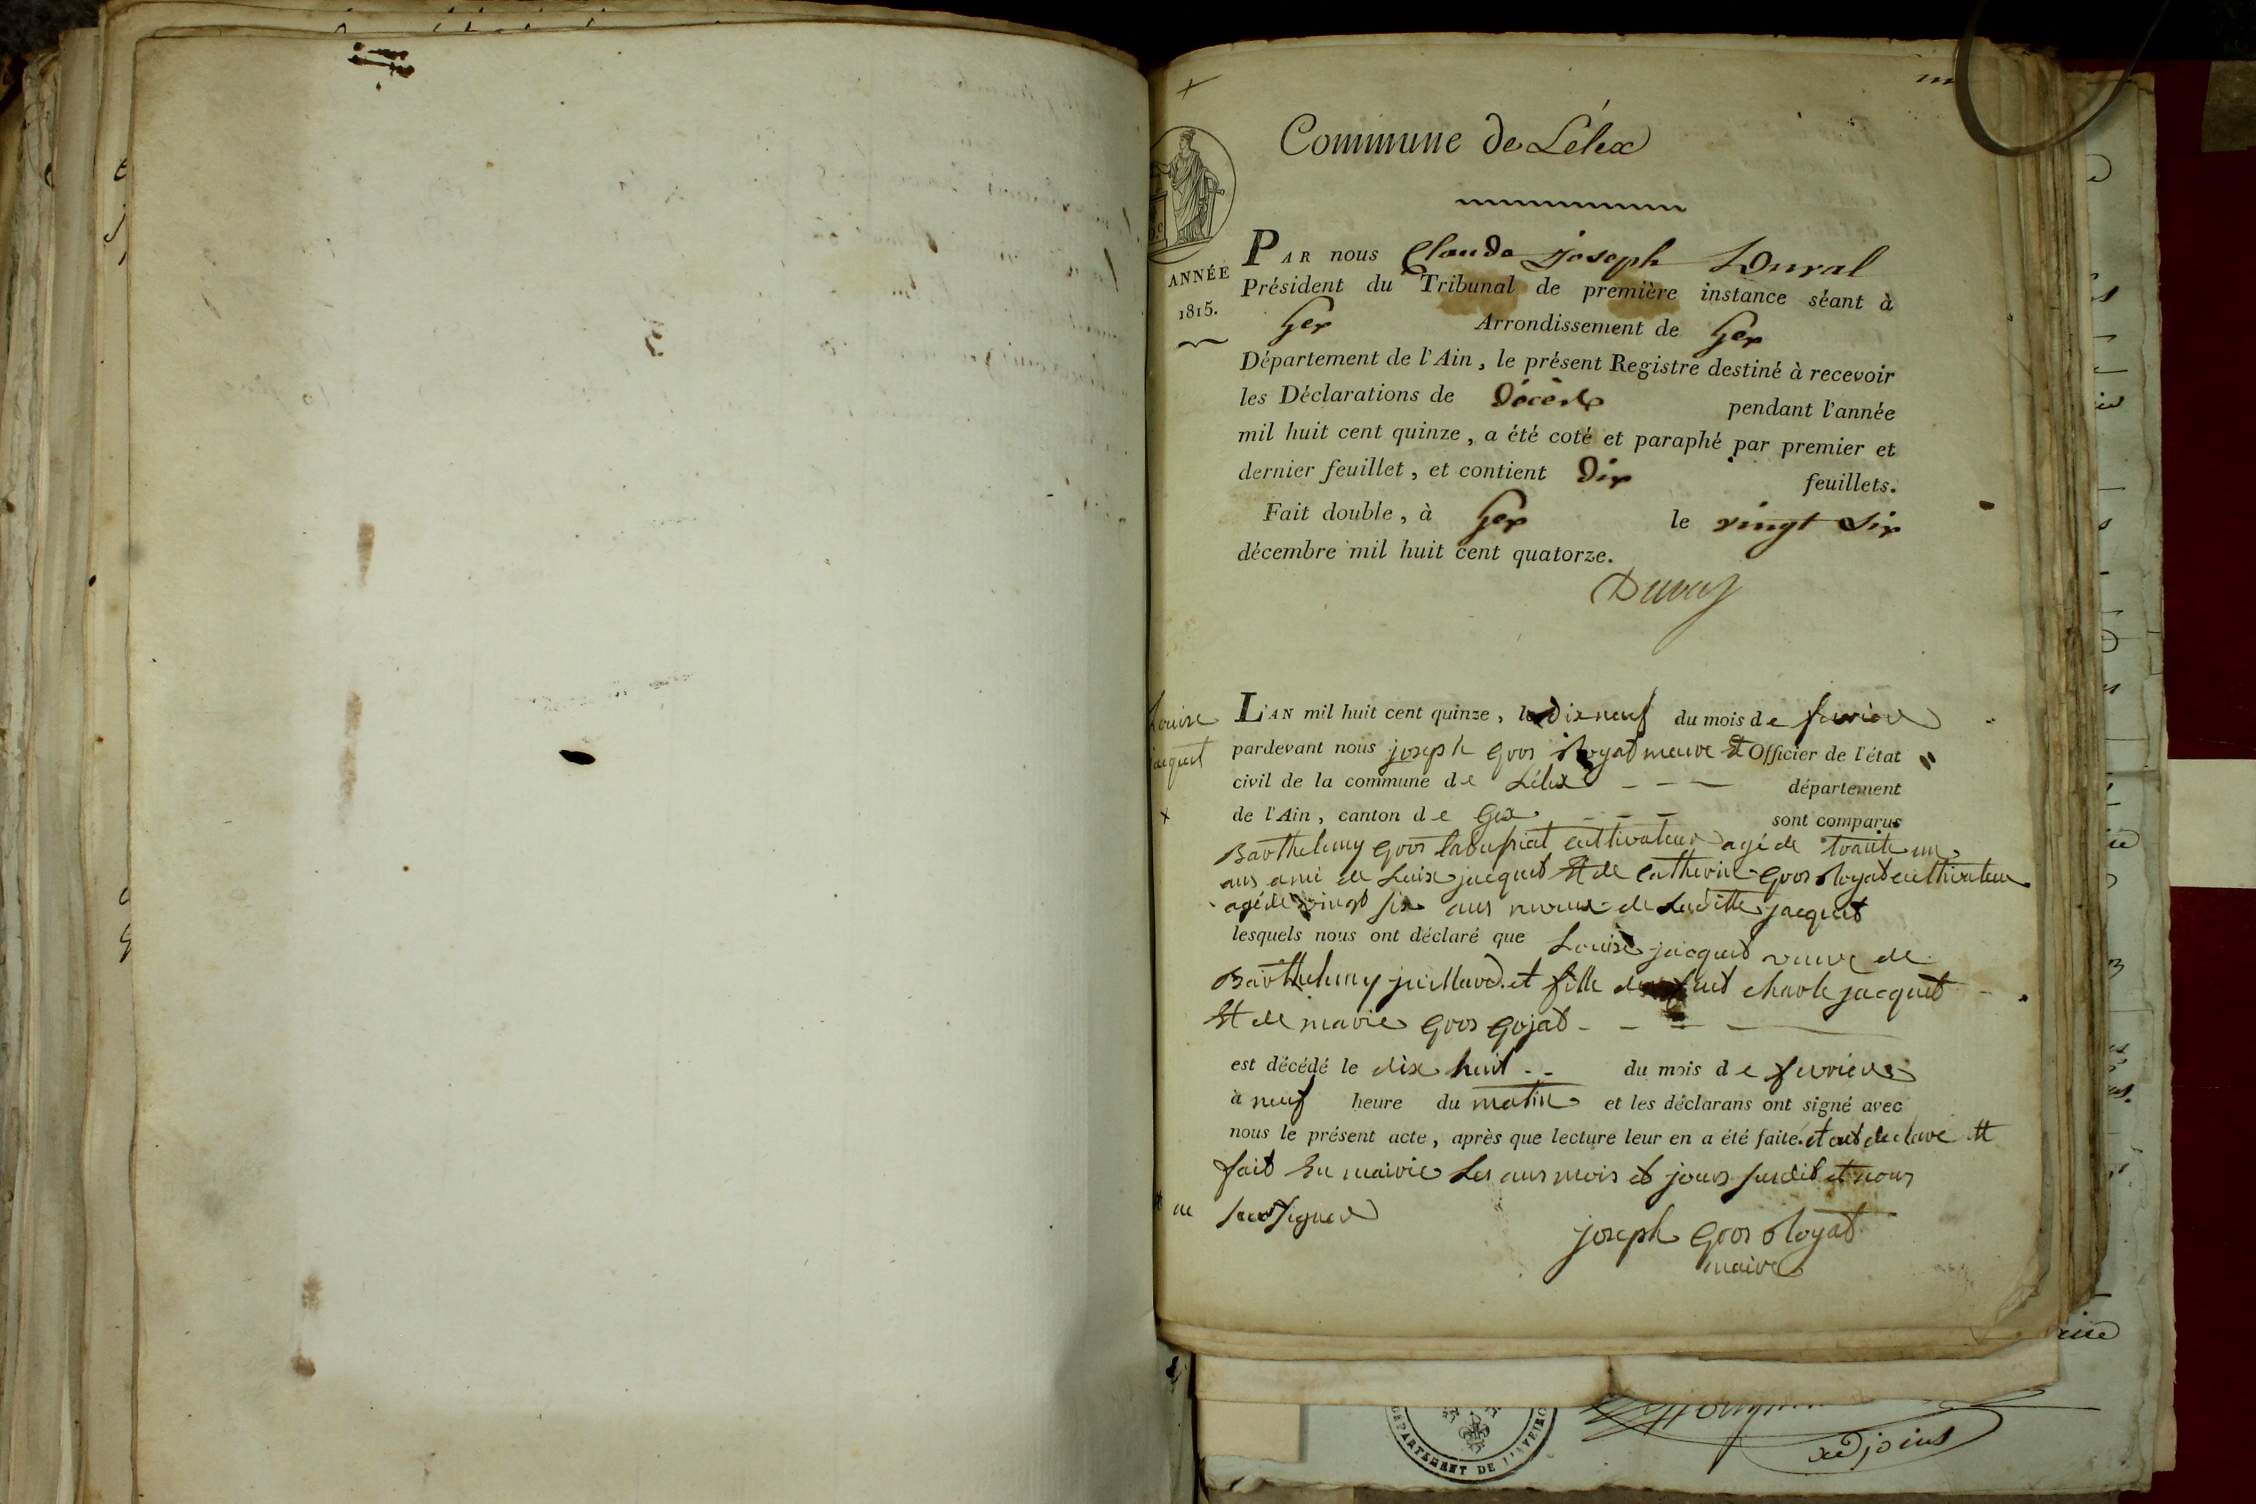 Commune de Lélex
ANNÉE
1815.
PAR nous Claude Joseph Duval
Président du Tribunal de première instance séant à
Gex Arrondissement de Gex
Département de l'Ain, le présent Registre destiné à recevoir
les Déclarations de Décès pendant l'année
mil huit cent quinze, a été coté et paraphé par premier et
dernier feuillet, et contient Dix feuillets.
Fait double, à Gex le vingt six
décembre mil huit cent quatorze.
Duval
Louise
jacquet
L'AN mil huit cent quinze, le dix neuf du mois de fevrier
pardevant nous joseph gros Royat maire et Officier de l'état
civil de la commune de Lélex département
de l'Ain, canton de Gex sont comparus
Barthelemy gros cultivateur agé de trante un
ans ami de Luise jacquet et de Catherin gros Royat cultivateur
agé de vingt six ans neveux de Laditte jacquet
lesquels nous ont déclaré que Louise jacquet veuve de
Barthelemy juillard et fille de feut charle jacquet
et de marie gros gojat
est décédé le dix huit du mois de fevrier
à neuf heure du matin et les déclarans ont signé avec
nous le présent acte, après que lecture leur en a été faite et ont declaré
fait En mairie Les ans mois et jours susdit et nous
ne signer
joseph gros Royat
maire
DÉPARTEMENT DE L'AVEYRON
adjoint